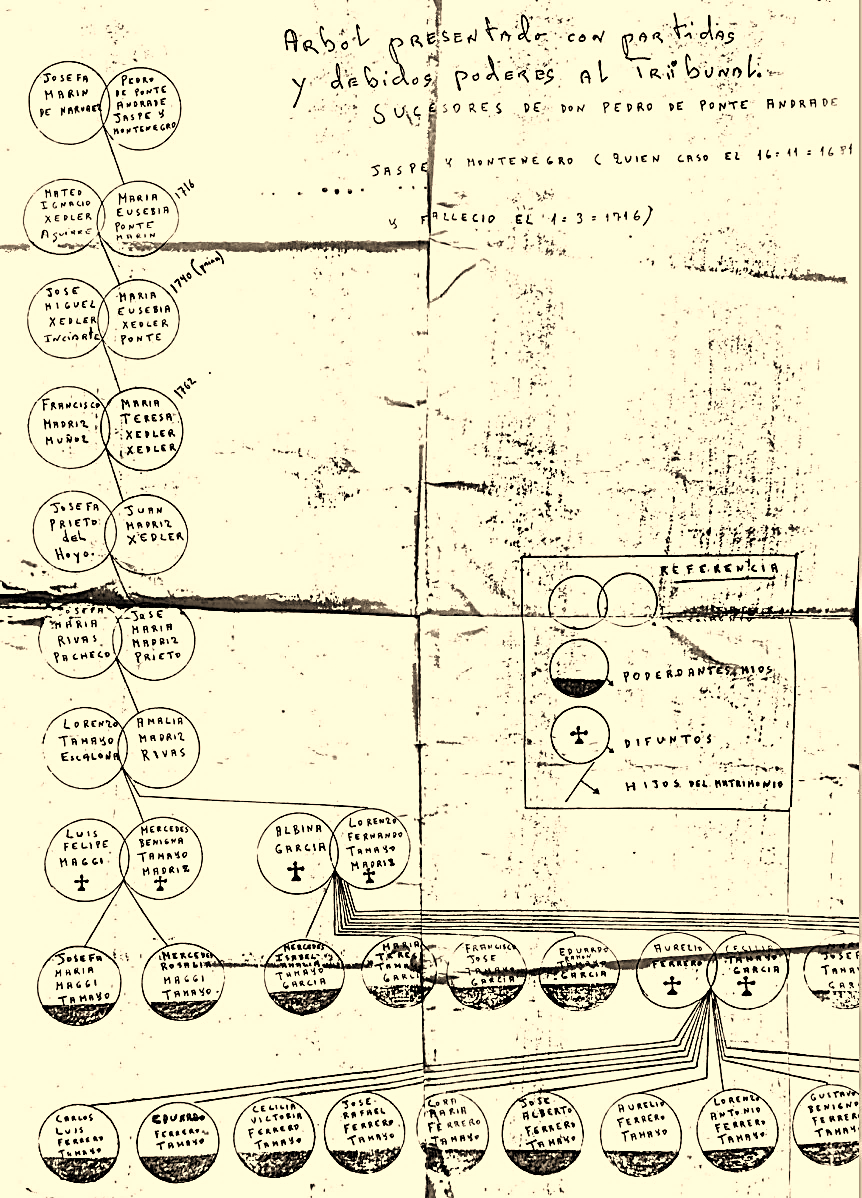 Arbol presentado con partidas
y debidos poderes al Tribunal.
SUCESORES DE DON PEDRO DE PONTE ANDRADE
JASPE Y MONTENEGRO (QUIEN CASO EL 16=11=1681
Y FALLECIO EL 1=3=1716)
JOSEFA
MARIN
DE NARVAEZ
PEDRO
DE PONTE
ANDRADE
JASPE Y
MONTENEGRO
MATEO
IGNACIO
XEDLER
AGUIRRE
MARIA
EUSEBIA
PONTE
MARIN
1716
JOSE
MIGUEL
XEDLER
INCIARTE
MARIA
EUSEBIA
XEDLER
PONTE
1740
FRANCISCO
MADRIZ
MUÑOZ
MARIA
TERESA
XEDLER
XEDLER
1762
JOSEFA
PRIETO
del
Hoyo.
JUAN
MADRIZ
XEDLER
JOSEFA
MARIA
RIVAS
PACHECO
JOSE
MARIA
MADRIZ
PRIETO
LORENZO
TAMAYO
ESCALONA
AMALIA
MADRIZ
RIVAS
REFERENCIA
PODERDANTES MIOS
DIFUNTOS
HIJOS DEL MATRIMONIO
LUIS
FELIPE
MAGGI
MERCEDES
BENIGNA
TAMAYO
MADRIZ
ALBINA
GARCIA
LORENZO
FERNANDO
TAMAYO
MADRIZ
JOSEFA
MARIA
MAGGI
TAMAYO
MERCEDES
ROSALIA
MAGGI
TAMAYO
MERCEDES
ISABEL
AMALIA
TAMAYO
GARCIA
MARIA
TERESA
TAMAYO
GARCIA
FRANCISCO
JOSE
TAMAYO
GARCIA
EDUARDO
RAMON
TAMAYO
GARCIA
AURELIO
FERRERO
CECILIA
TAMAYO
GARCIA
JOSEFA
TAMA
GAR
CARLOS
LUIS
FERRERO
TAMAYO
EDUARDO
FERRERO
TAMAYO
CECILIA
VICTORIA
FERRERO
TAMAYO
JOSE
RAFAEL
FERRERO
TAMAYO
CORA
MARIA
FERRERO
TAMAYO
JOSE
ALBERTO
FERRERO
TAMAYO
AURELIO
FERRERO
TAMAYO
LORENZO
ANTONIO
FERRERO
TAMAYO
GUSTAVO
BENIGNO
FERRERO
TAMAY